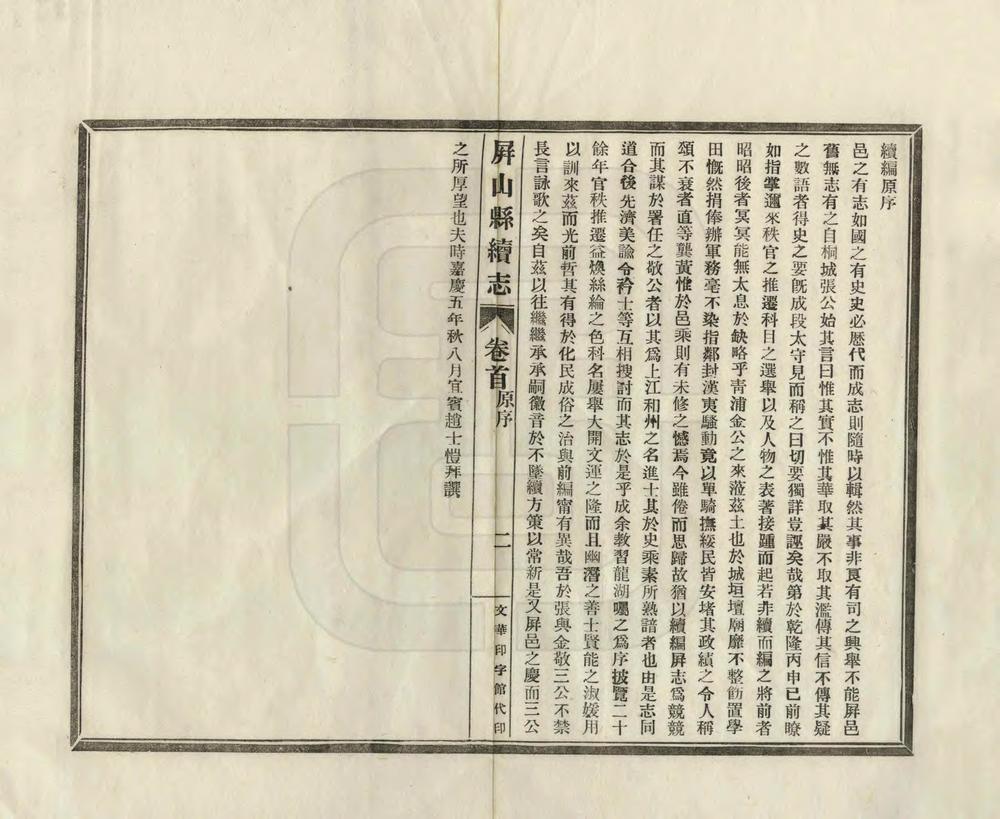 續編原序
邑之有志如國之有史史必歷代而成志則隨時以輯然其事非良有司之興舉不能屏邑
舊無志有之自桐城張公始其言曰惟其實不惟其華取其嚴不取其濫傳其信不傳其疑
之數語者得史之要旣成段太守見而稱之曰切要獨詳豈誣矣哉第於乾隆丙申已前瞭
如指掌邇來秩官之推遷科目之選舉以及人物之表著接踵而起若非續而編之將前者
昭昭後者冥冥能無太息於缺略乎靑浦金公之來蒞茲土也於城垣壇廟靡不整飭置學
田慨然捐俸辦軍務毫不染指鄰封漢夷騷動竟以單騎撫綏民皆安堵其政績之令人稱
頌不衰者直等龔黃惟於邑乘則有未修之憾焉今雖倦而思歸故猶以續編屏志爲競競
而其謀於署任之敬公者以其爲上江和州之名進士其於史乘素所熟諳者也由是志同
道合後先濟美諭令衿士等互相搜討而其志於是乎成余敎習龍湖囑之爲序披覽二十
餘年官秩推遷益煥絲綸之色科名屢舉大開文運之隆而且幽潛之善士賢能之淑媛用
以訓來茲而光前哲其有得於化民成俗之治與前編甯有異哉吾於張與金敬三公不禁
長言詠歌之矣自茲以往繼繼承承嗣徽音於不墜續方策以常新是又屏邑之慶而三公
屏山縣續志 卷首 原序 二 文華印字館代印
之所厚望也夫時嘉慶五年秋八月宜賓趙士愷拜譔